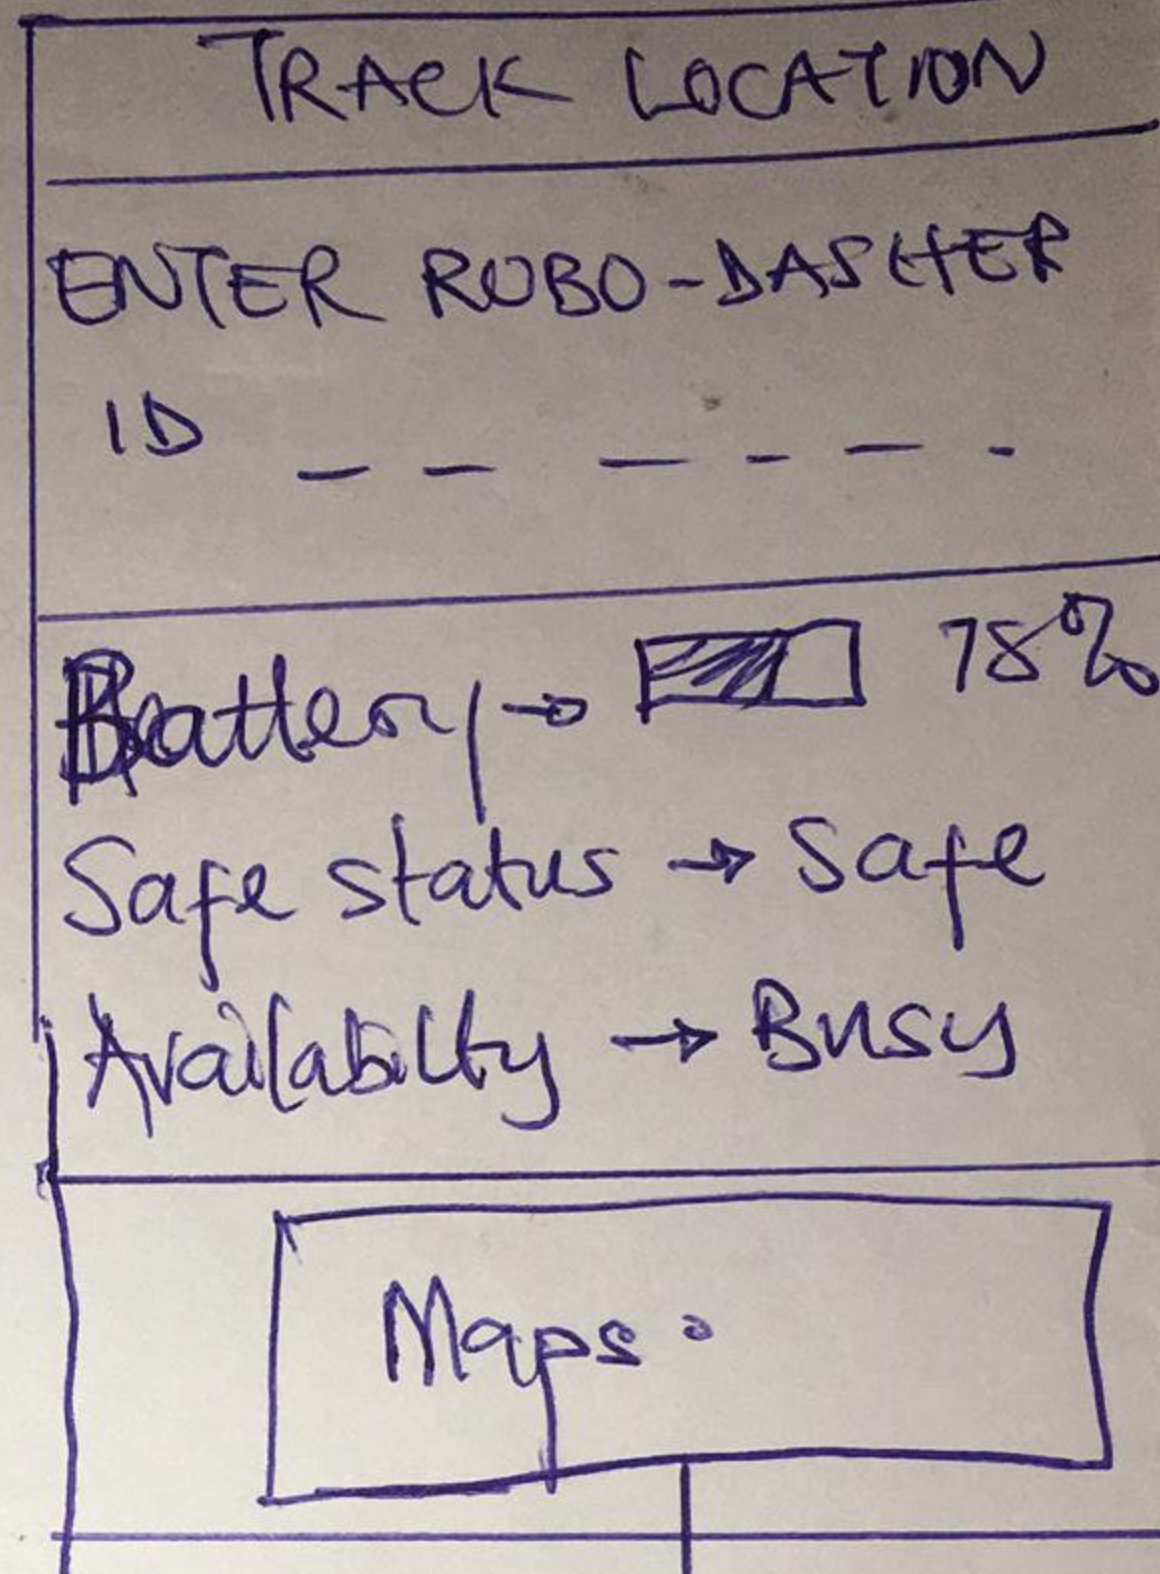 TRACK LOCATION
ENTER ROBO-DASHER
ID _ _ _ _ _ _
Battery → 78%
Safe status → Safe
Availabilty → Busy
Maps